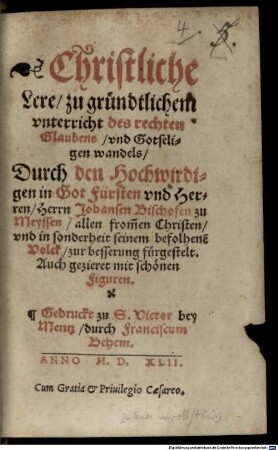 4.
Christliche
Lere/ zu gründtlichem
vnterricht des rechten
Glaubens/ vnd Gotseli-
gen wandels/
Durch den Hochwirdi-
gen in Got Fürsten vnd Her-
ren/ Herrn Johansen Bischofen zu
Meyssen/ allen from̄en Christen/
vnd in sonderheit seinem befolhenē
Volck/ zur besserung fürgestelt.
Auch gezieret mit schönen
Figuren.
¶ Gedruckt zu S. Victor bey
Mentz/ durch Franciscum
Behem.
ANNO M. D. XLII.
Cum Gratia & Priuilegio Cæsareo.